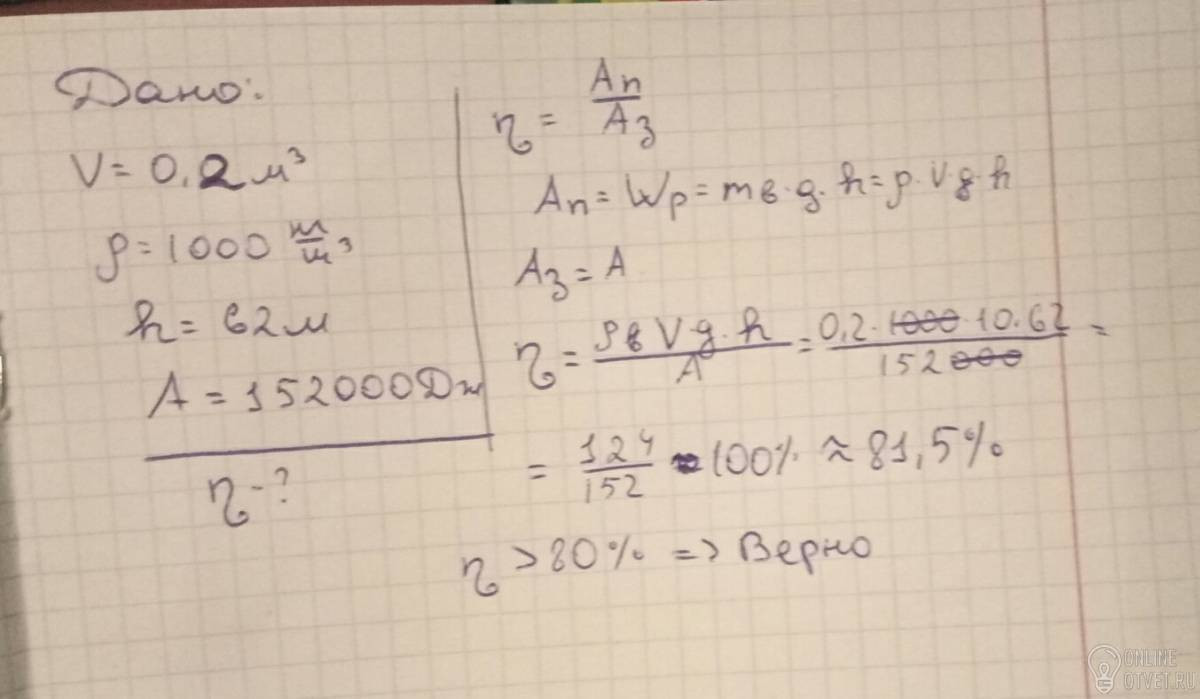 Дано:
V = 0,2 м³
ρ = 1000 т/м³
h = 62 м
A = 152000 Дж
η - ?
η = Aп/Aз
Aп = Wp = mв·g·h = ρ·V·g·h
Aз = A
η = ρв V·g·h/A = 0,2·1000·10·62/152000 =
= 124/152 · 100% ≈ 81,5%
η > 80% => Верно
ONLINE
OTVET.RU